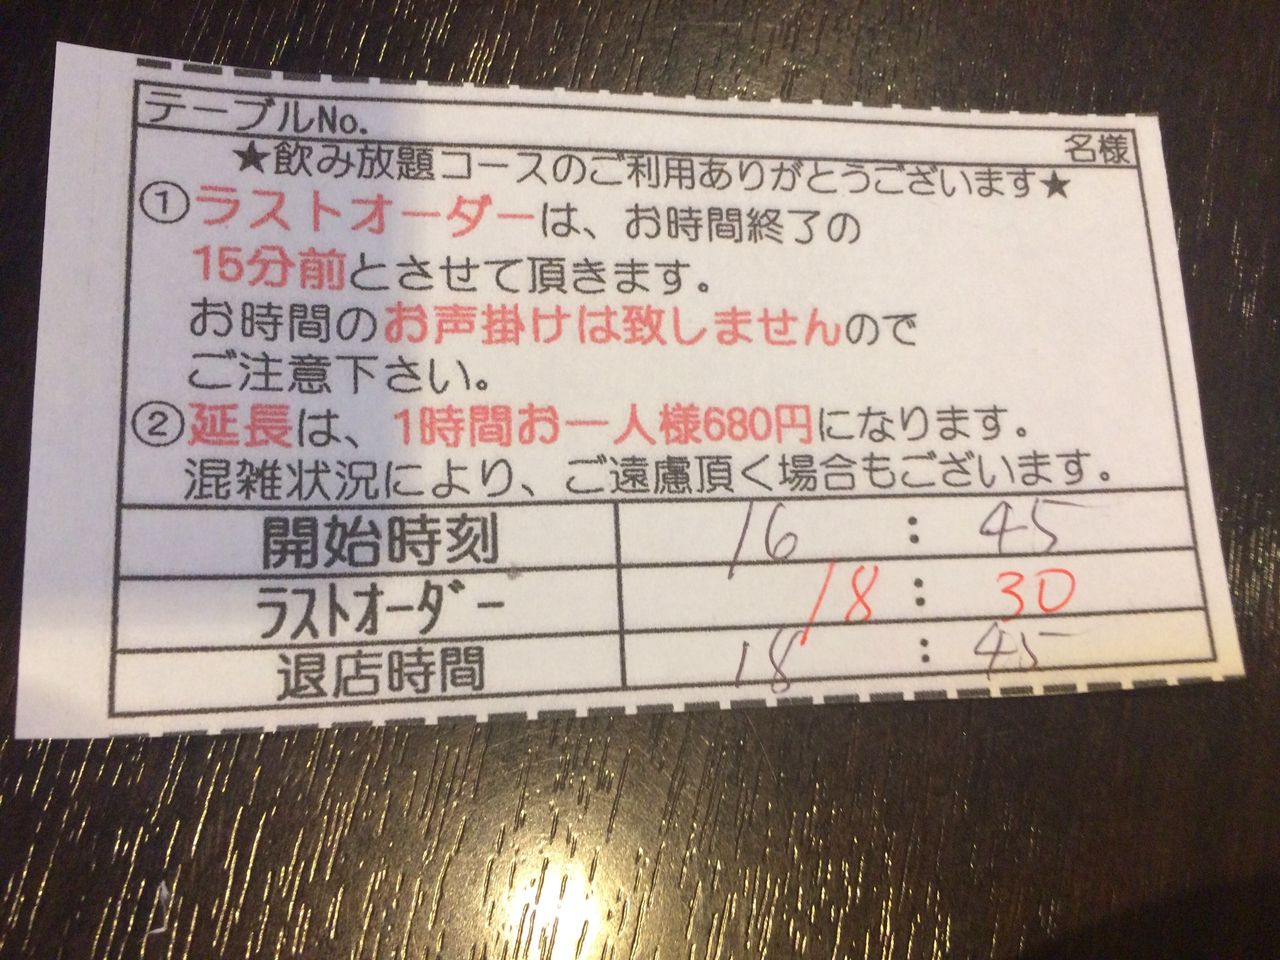 テーブルNo.
名様
★飲み放題コースのご利用ありがとうございます★
①ラストオーダーは、お時間終了の
15分前とさせて頂きます。
お時間のお声掛けは致しませんので
ご注意下さい。
②延長は、1時間お一人様680円になります。
混雑状況により、ご遠慮頂く場合もございます。
開始時刻 16 : 45
ラストオーダー 18 : 30
退店時間 18 : 45